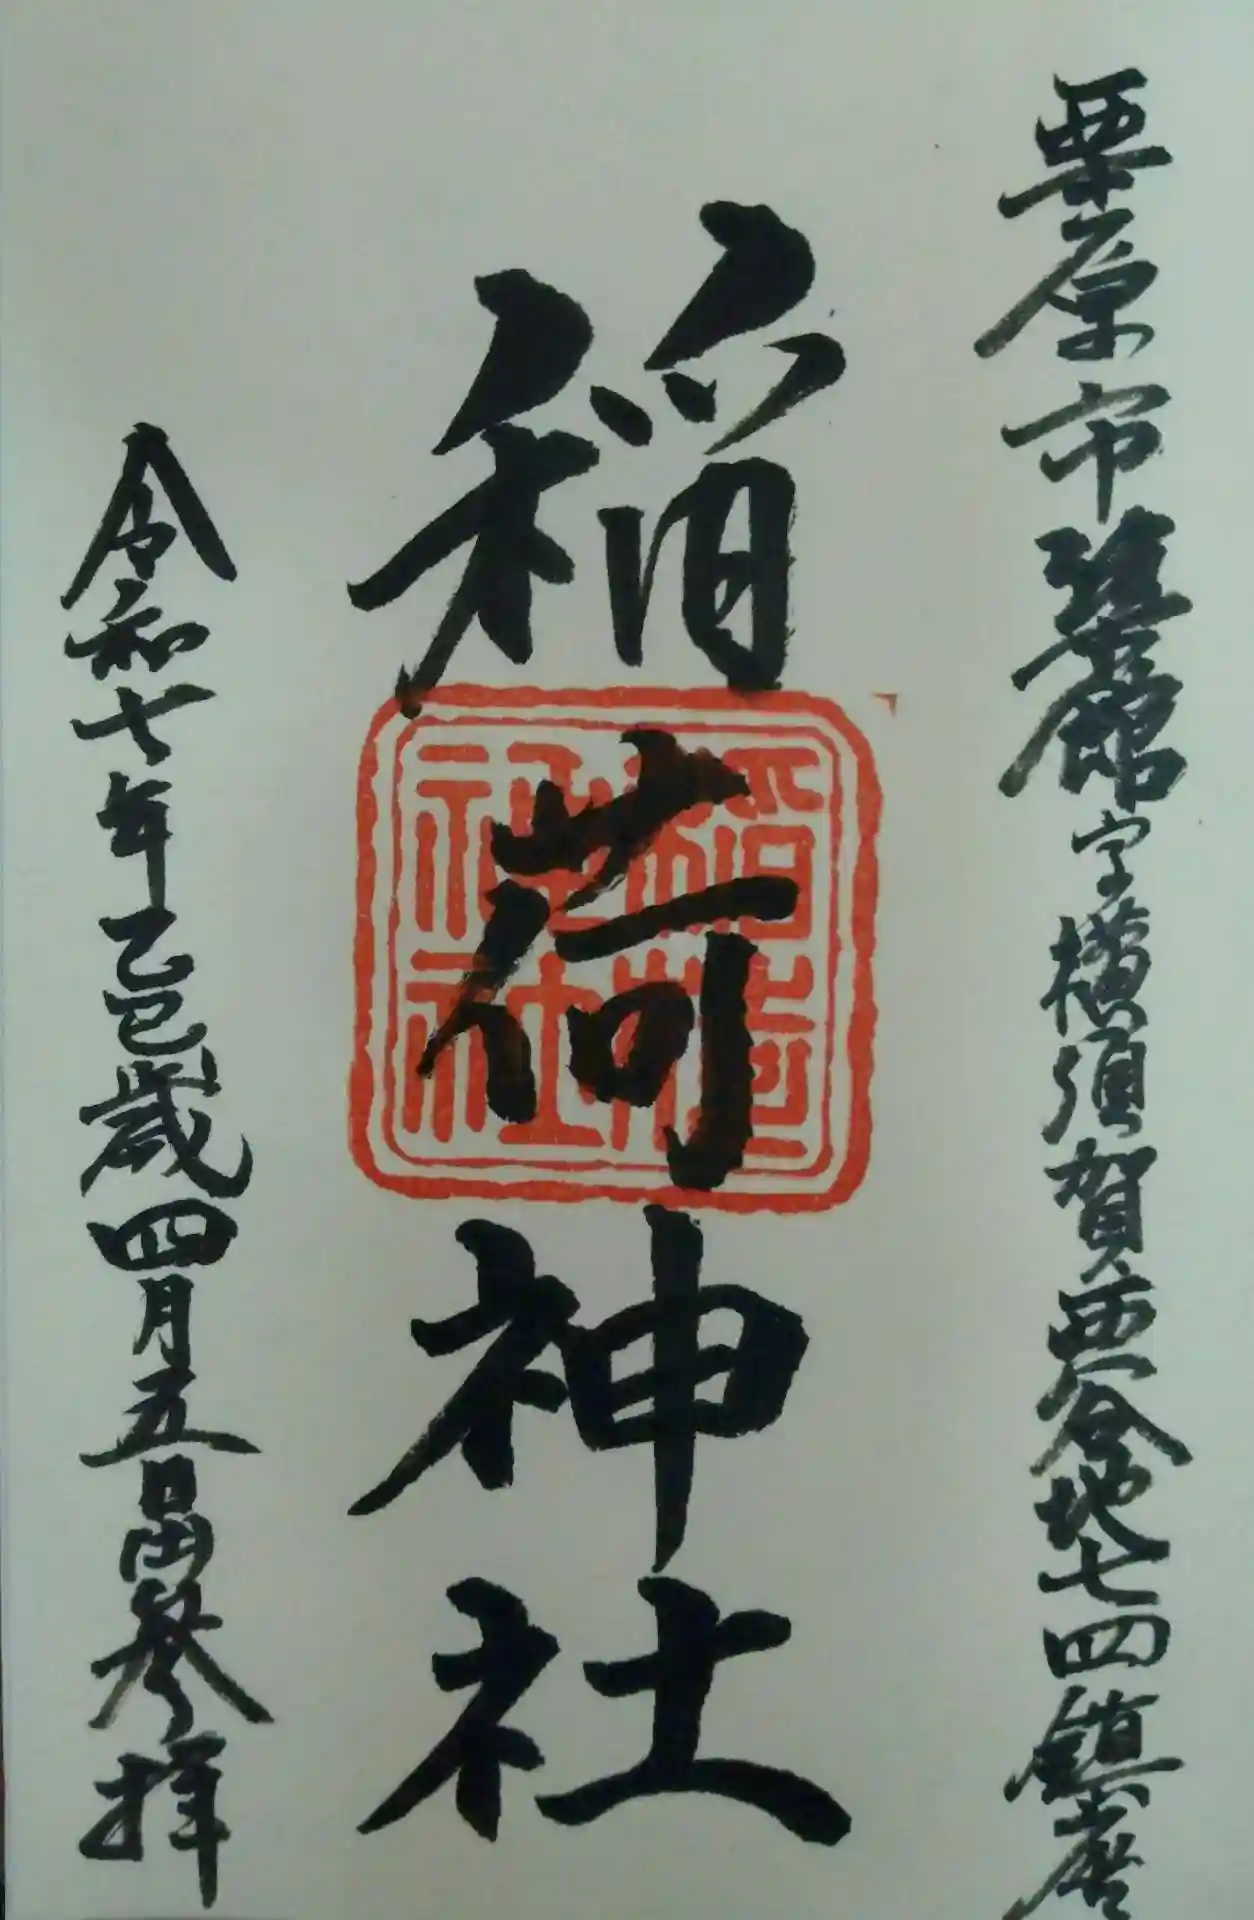 栗原市築館字横須賀西地七四鎮座
稲荷神社
稲荷
神社
令和七年乙巳歳四月五日参拝